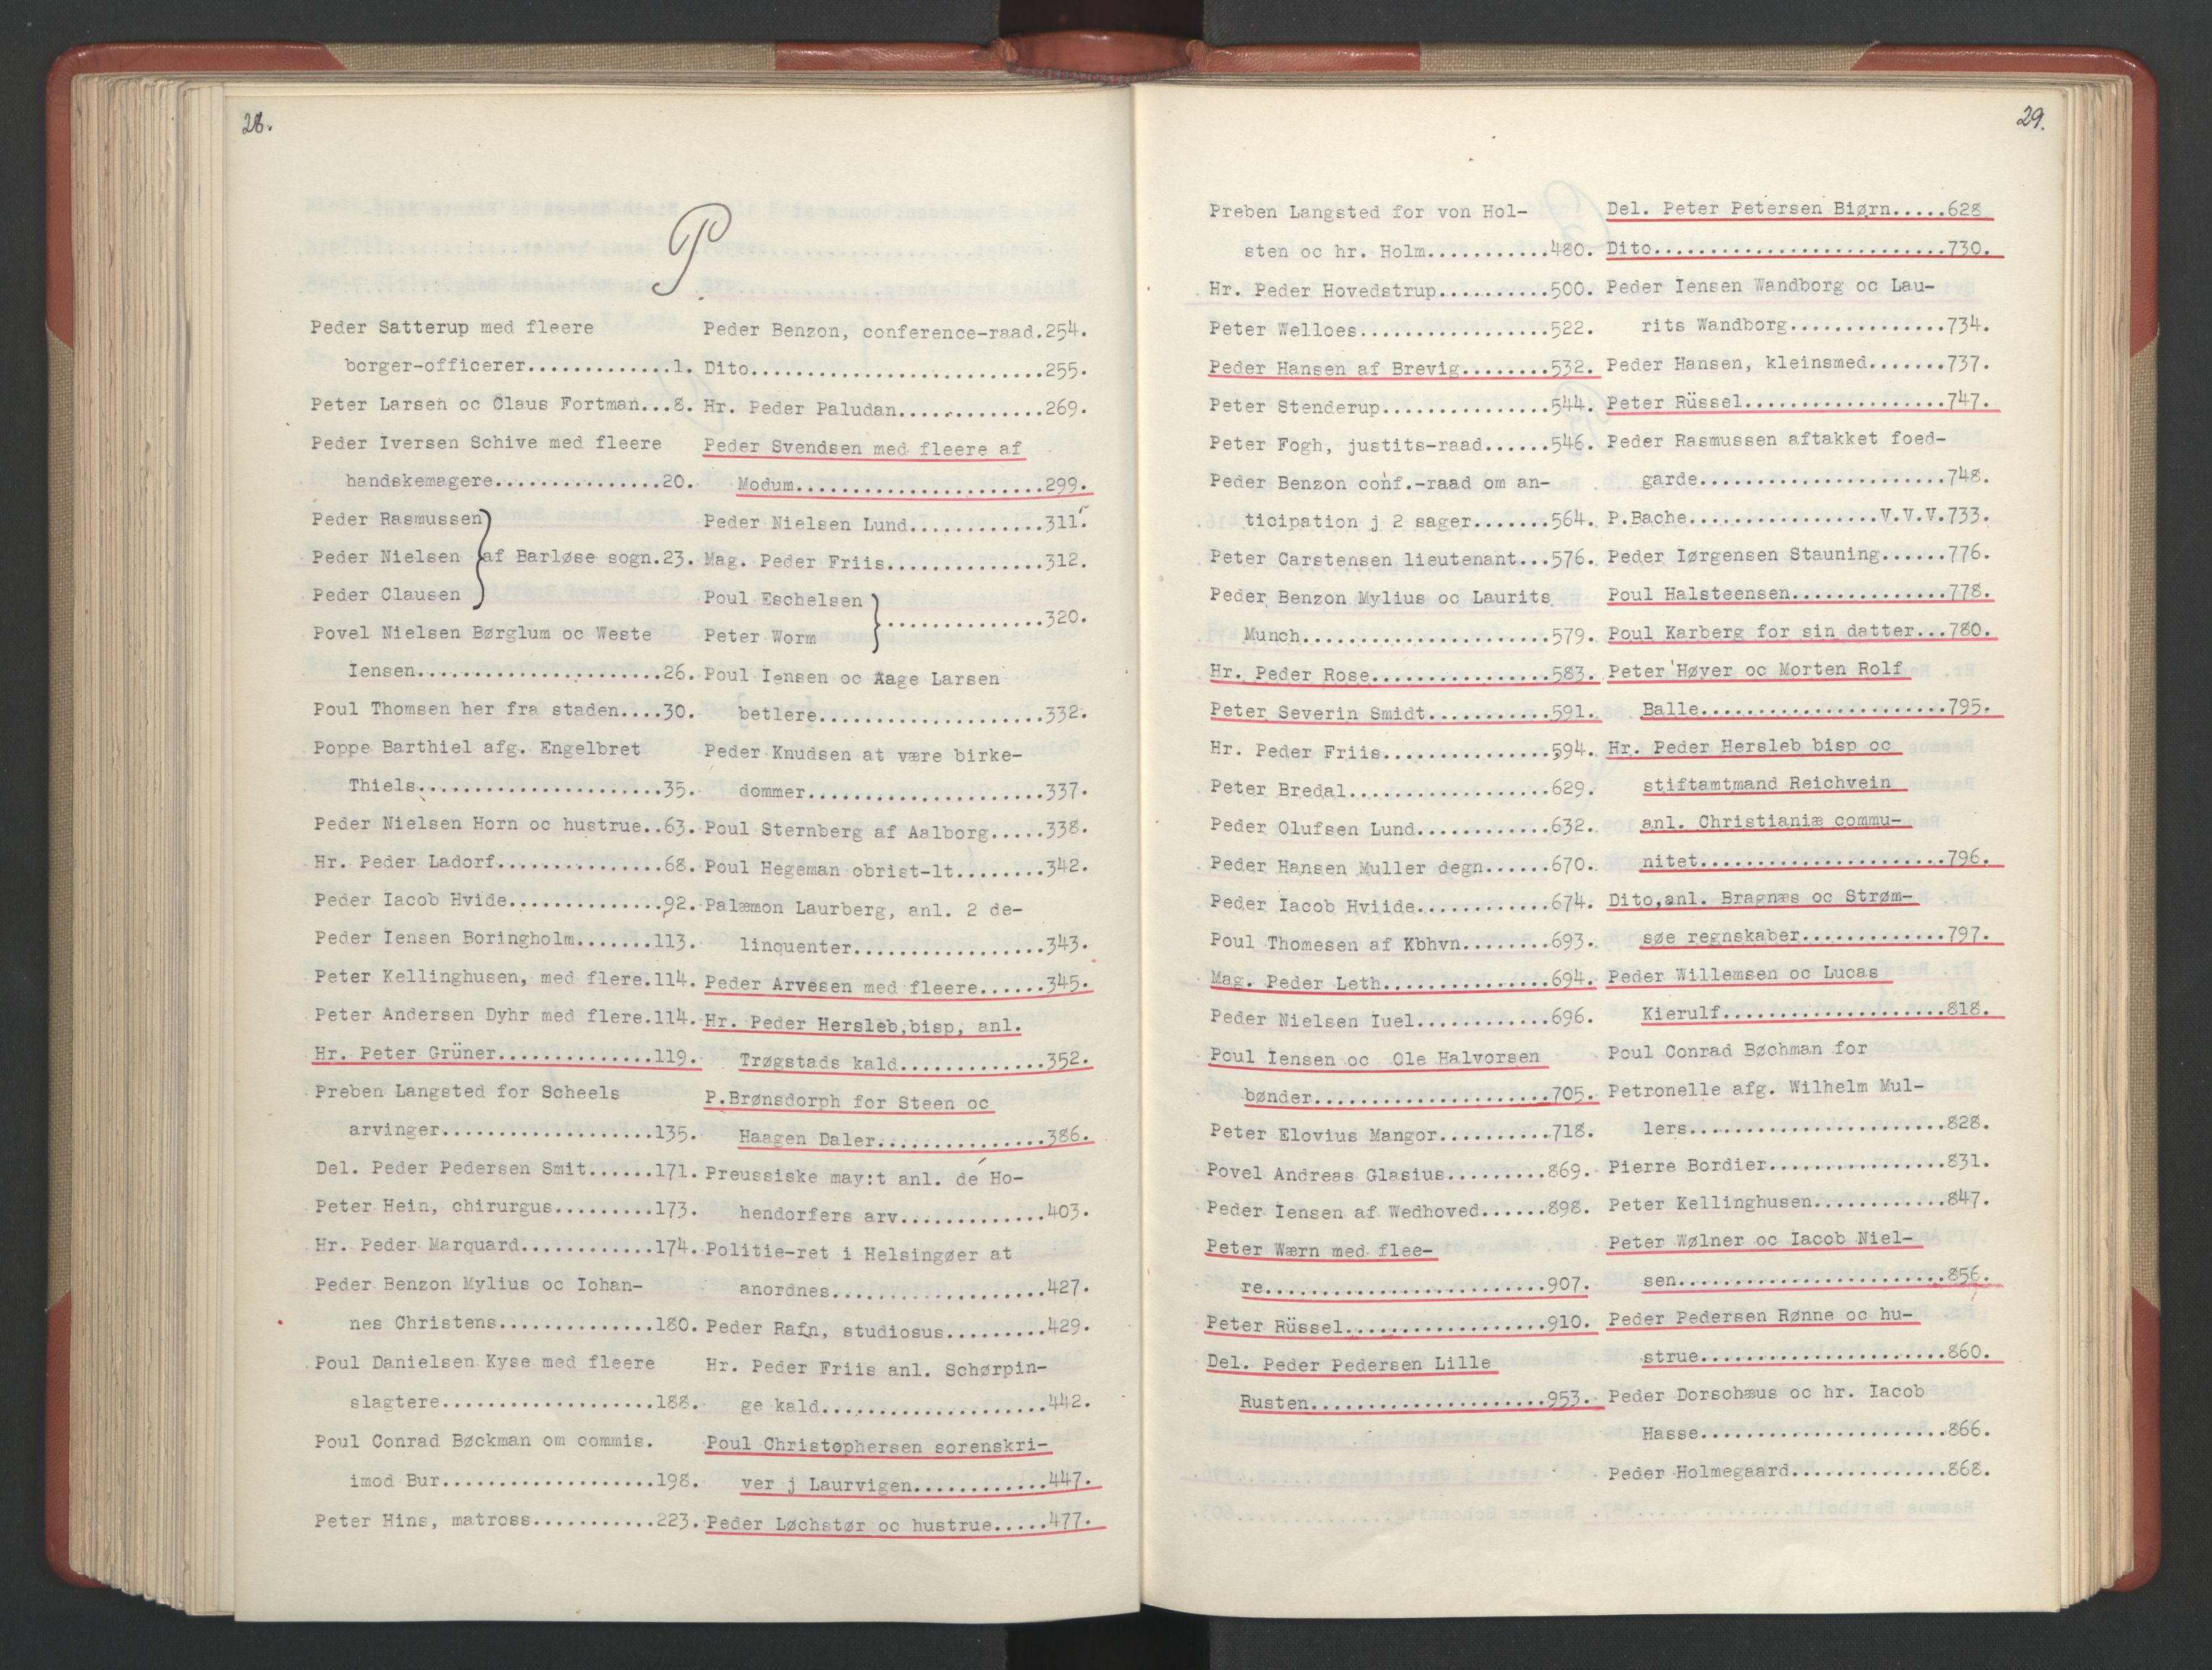 28.
P.
Peder Satterup med fleere
borger-officerer.............1.
Peter Larsen oc Claus Fortman...8.
Peder Iversen Schive med fleere
handskemagere...............20.
Peder Rasmussen
Peder Nielsen af Barløse sogn.23.
Peder Clausen
Povel Nielsen Børglum oc Weste
Iensen......................26.
Poul Thomsen her fra staden....30.
Poppe Barthiel afg. Engelbret
Thiels......................35.
Peder Nielsen Horn oc hustrue..63.
Hr. Peder Ladorf...............68.
Peder Iacob Hvide..............92.
Peder Iensen Boringholm.......113.
Peter Kellinghusen, med flere.114.
Peter Andersen Dyhr med flere.114.
Hr. Peter Grüner..............119.
Preben Langsted for Scheels
arvinger...................135.
Del. Peder Pedersen Smit......171.
Peter Hein, chirurgus.........173.
Hr. Peder Marquard............174.
Peder Benzon Mylius oc Iohan-
nes Christens..............180.
Poul Danielsen Kyse med fleere
slagtere...................188.
Poul Conrad Bøckman om commis.
imod Bur...................198.
Peter Hins, matross...........223.
Peder Benzon, conference-raad.254.
Dito..........................255.
Hr. Peder Paludan.............269.
Peder Svendsen med fleere af
Modum......................299.
Peder Nielsen Lund............311.
Mag. Peder Friis..............312.
Poul Eschelsen
Peter Worm ..............320.
Poul Iensen oc Aage Larsen
betlere....................332.
Peder Knudsen at være birke-
dommer.....................337.
Poul Sternberg af Aalborg.....338.
Poul Hegeman obrist-lt........342.
Palæmon Laurberg, anl. 2 de-
linquenter.................343.
Peder Arvesen med fleere......345.
Hr. Peder Hersleb,bisp, anl.
Trøgstads kald.............352.
P.Brønsdorph for Steen oc
Haagen Daler...............386.
Preussiske may:t anl. de Ho-
hendorfers arv.............403.
Politie-ret i Helsingøer at
anordnes...................427.
Peder Rafn, studiosus.........429.
Hr. Peder Friis anl. Schørpin-
ge kald....................442.
Poul Christophersen sorenskri-
ver j Laurvigen............447.
Peder Løchstør oc hustrue.....477.
29.
Preben Langsted for von Hol-
sten oc hr. Holm...........480.
Hr. Peder Hovedstrup..........500.
Peter Welloes.................522.
Peder Hansen af Brevig........532.
Peter Stenderup...............544.
Peter Fogh, justits-raad......546.
Peder Benzon conf.-raad om an-
ticipation j 2 sager.......564.
Peter Carstensen lieutenant...576.
Peder Benzon Mylius oc Laurits
Munch......................579.
Hr. Peder Rose................583.
Peter Severin Smidt...........591.
Hr. Peder Friis...............594.
Peter Bredal..................629.
Peder Olufsen Lund............632.
Peder Hansen Muller degn......670.
Peder Iacob Hviide............674.
Poul Thomesen af Kbhvn........693.
Mag. Peder Leth...............694.
Peder Nielsen Iuel............696.
Poul Iensen oc Ole Halvorsen
bønder.....................705.
Peter Elovius Mangor..........718.
Povel Andreas Glasius.........869.
Peder Iensen af Wedhoved......898.
Peter Wærn med flee-
re.........................907.
Peter Rüssel..................910.
Del. Peder Pedersen Lille
Rusten.....................953.
Del. Peter Petersen Biørn.....628
Dito..........................730.
Peder Iensen Wandborg oc Lau-
rits Wandborg..............734.
Peder Hansen, kleinsmed.......737.
Peter Rüssel..................747.
Peder Rasmussen aftakket foed-
garde......................748.
P.Bache.................V.V.V.733.
Peder Iørgensen Stauning......776.
Poul Halsteensen..............778.
Poul Karberg for sin datter...780.
Peter Høyer oc Morten Rolf
Balle......................795.
Hr. Peder Hersleb bisp oc
stiftamtmand Reichvein
anl. Christianiæ commu-
nitet......................796.
Dito,anl. Bragnæs oc Strøm-
søe regnskaber.............797.
Peder Willemsen oc Lucas
Kierulf....................818.
Poul Conrad Bøchman for
Petronelle afg. Wilhelm Mul-
lers.......................828.
Pierre Bordier................831.
Peter Kellinghusen............847.
Peter Wølner oc Iacob Niel-
sen........................856.
Peder Pedersen Rønne oc hu-
strue......................860.
Peder Dorschæus oc hr. Iacob
Hasse......................866.
Peder Holmegaard..............868.